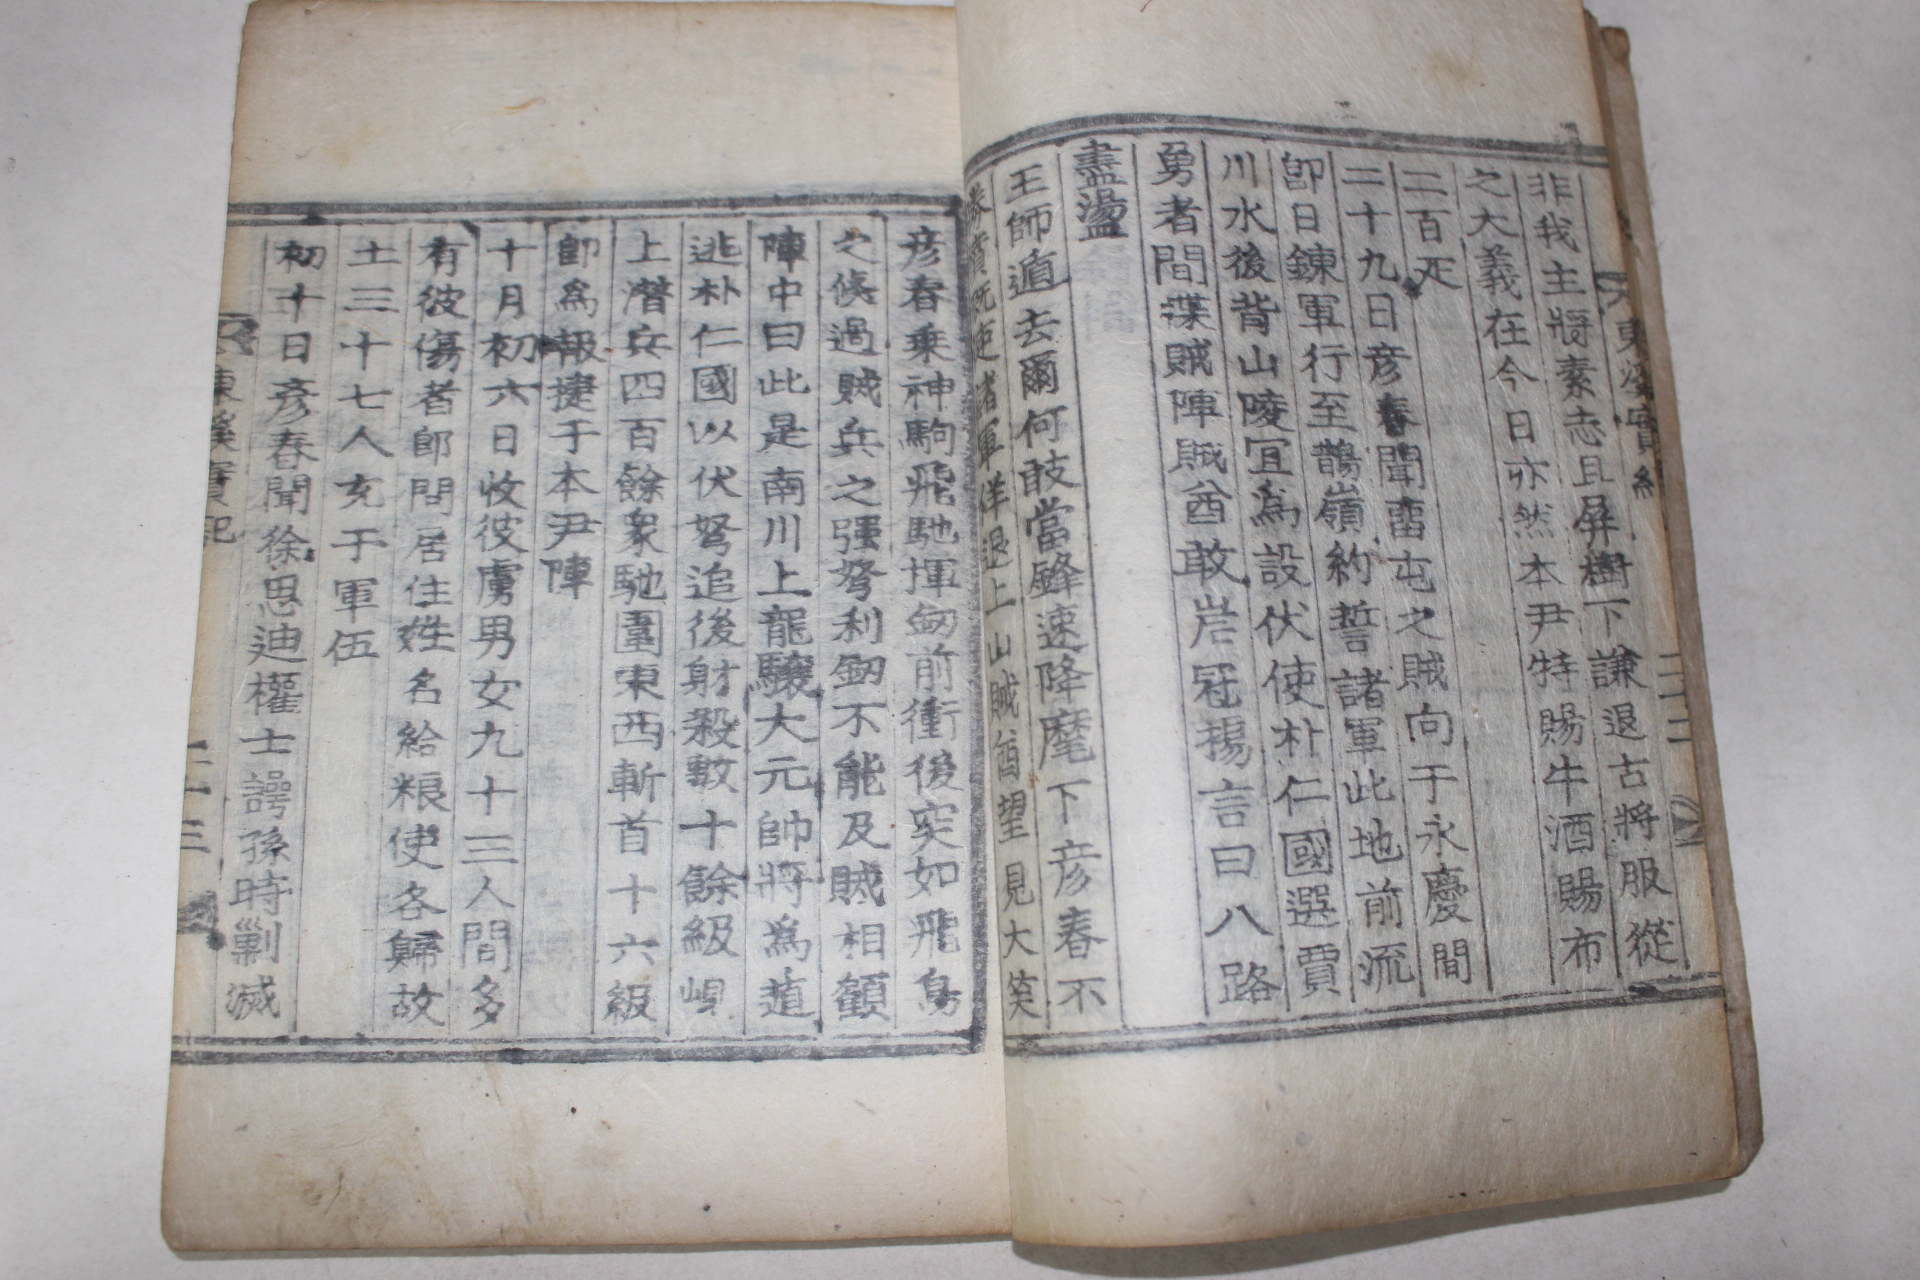 東溪實紀
二十二
非我主將素志且屏樹下謙退古將服從
之大義在今日亦然本尹特賜牛酒賜布
二百疋
二十九日彦春聞雷屯之賊向于永慶間
卽日鍊軍行至鵲嶺約誓諸軍此地前流
川水後背山陵宜爲設伏使朴仁國選賈
勇者間諜賊陣賊酋敢岩冠揚言曰八路
盡蕩
王師遁去爾何敢當鋒速降麾下彦春不
勝賁旣使諸軍佯退上山賊酋望見大笑
彦春乗神駒飛馳揮劒前衝後突如飛鳥
之倏過賊兵之强弩利劒不能及賊相顧
陣中曰此是南川上龍驤大元帥將爲遁
逃朴仁國以伏弩追後射殺數十餘級峴
上潛兵四百餘衆馳圍東西斬首十六級
卽爲報捷于本尹陣
十月初六日收彼虜男女九十三人間多
有彼傷者卽問居住姓名給粮使各歸故
土三十七人充于軍伍
初十日彦春聞徐思迪權士諤孫時剿滅
東溪實紀
二十三